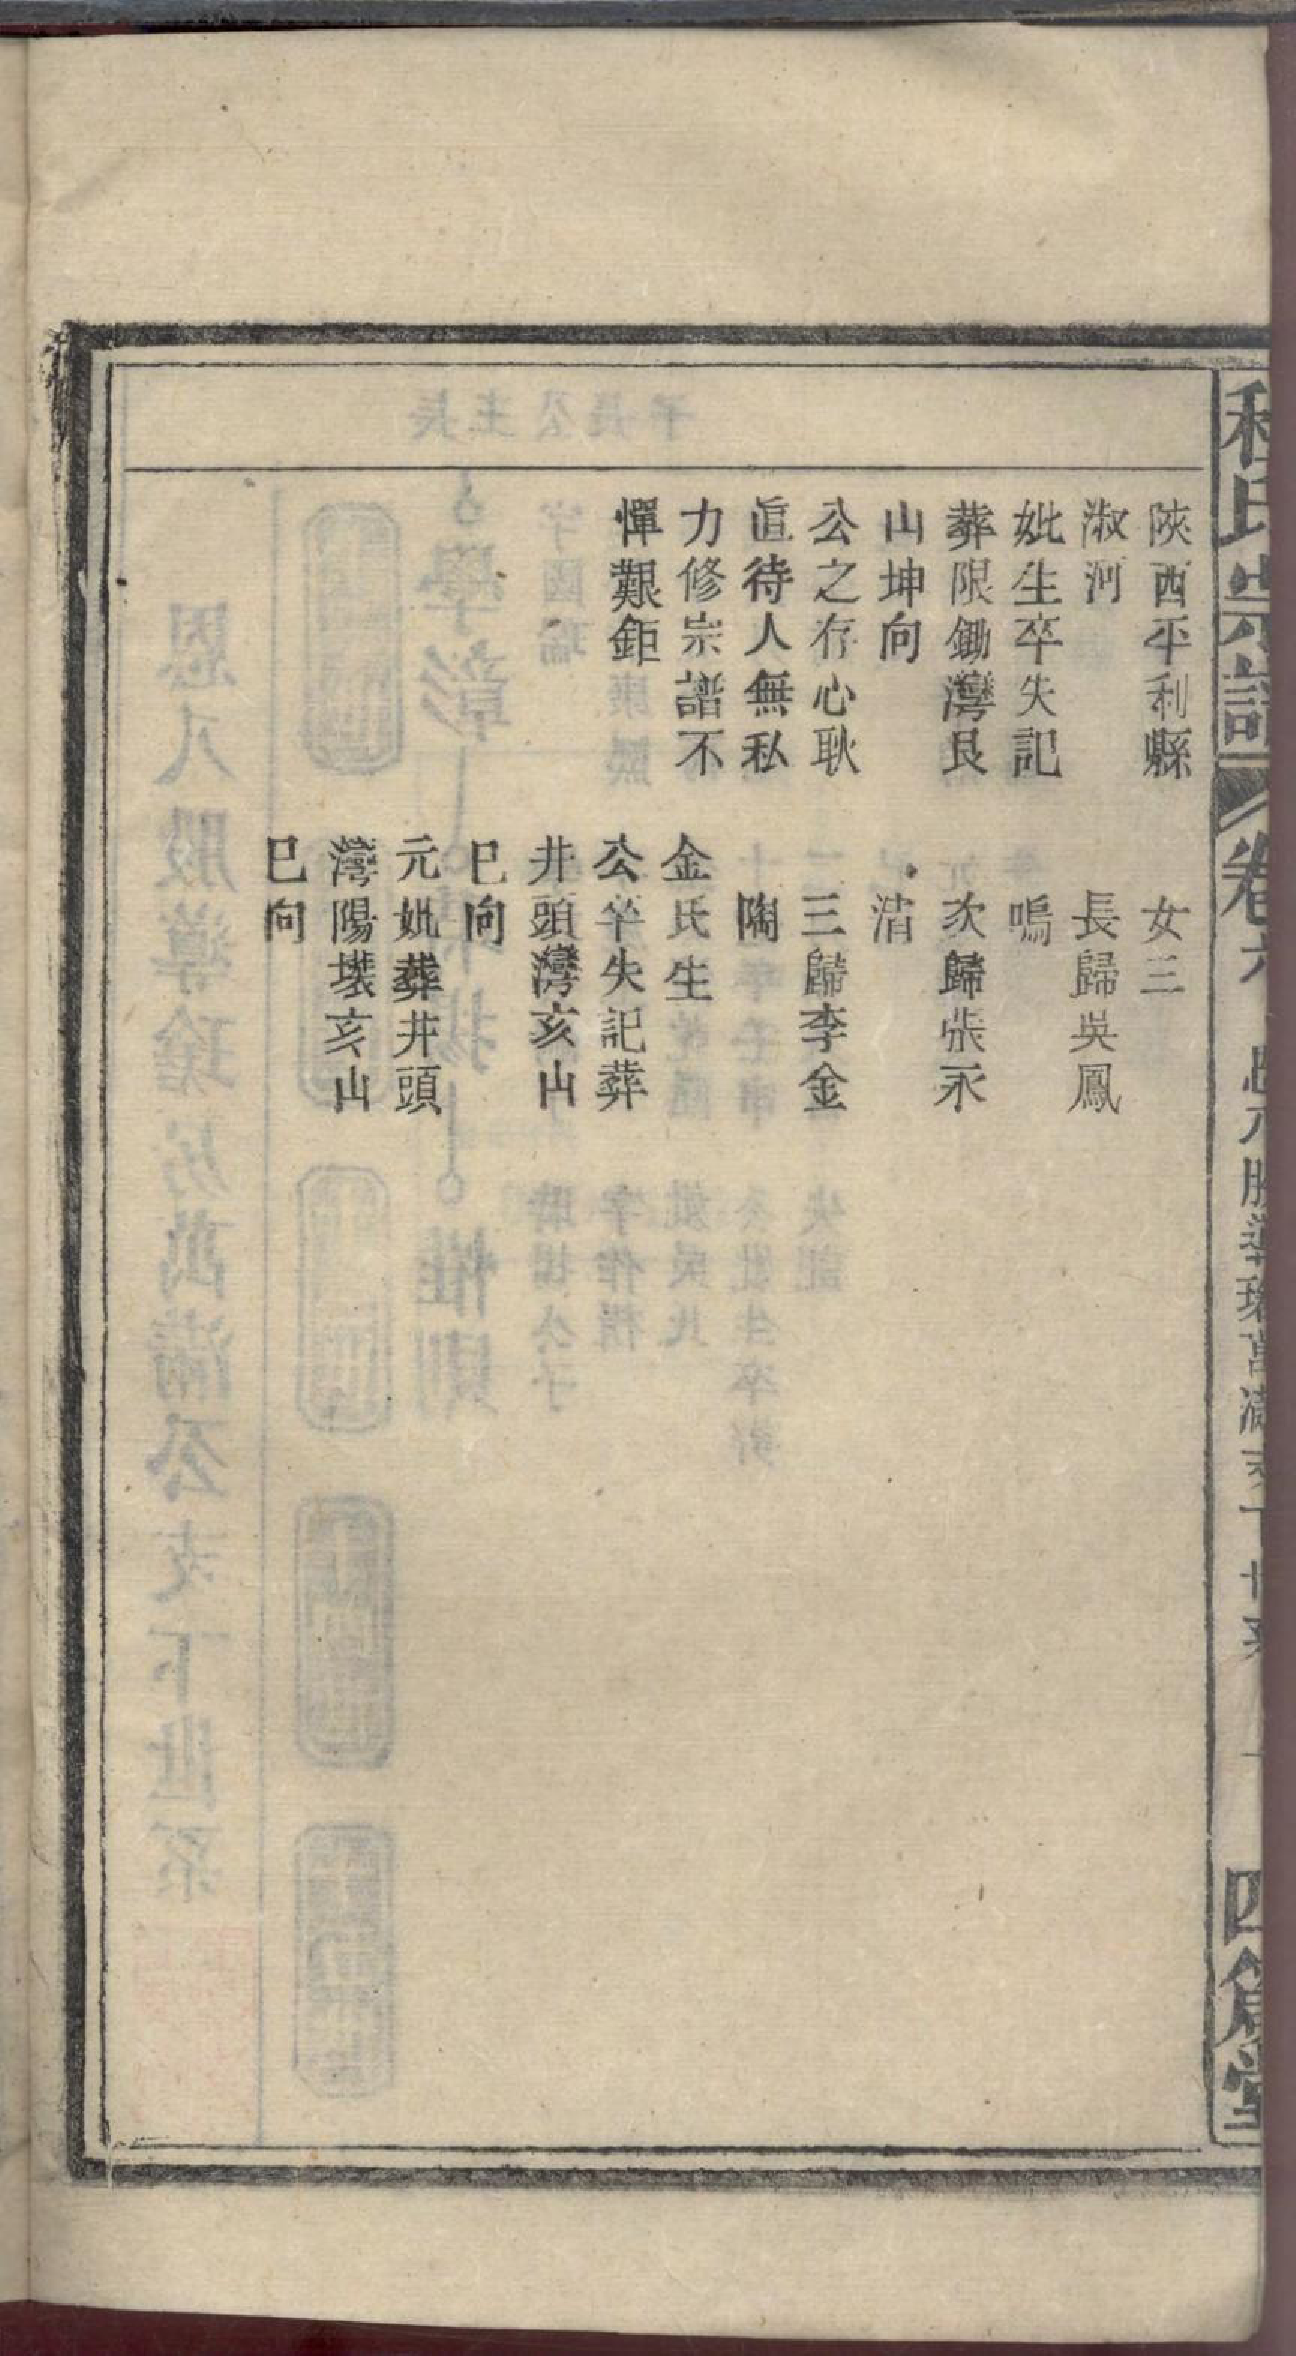 陝西平利縣
淑河
妣生卒失記
葬限鋤灣艮
山坤向
公之存心耿
直待人無私
力修宗譜不
憚艱鉅
女三
長歸吳鳳
鳴
次歸張永
清
三歸李金
陶
金氏生
公卒失記葬
井頭灣亥山
巳向
元妣葬井頭
灣陽塂亥山
巳向
程氏宗譜
卷六
四箴堂